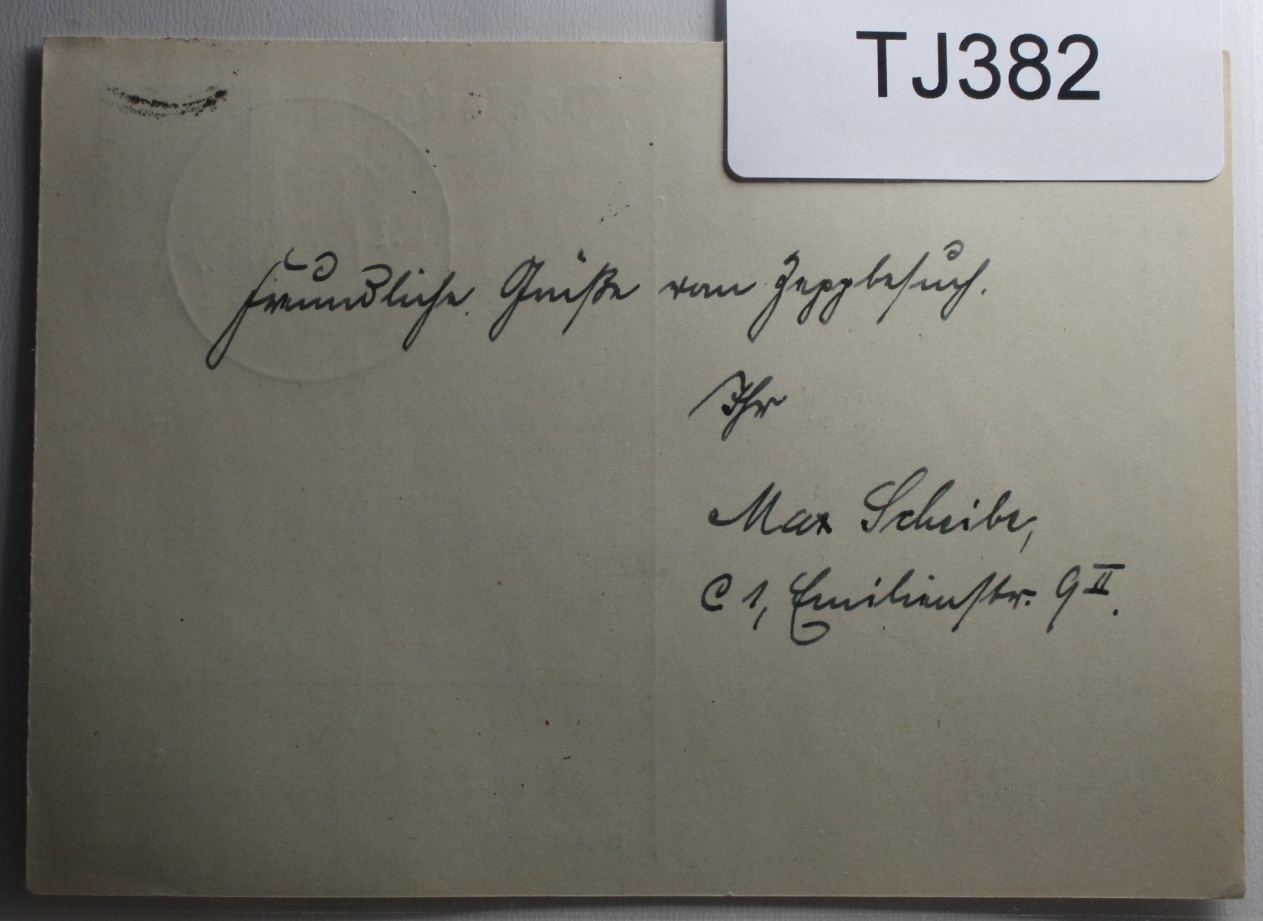 TJ382
Freundliche Grüße vom Zeppbesuch.
Ihr
Max Scheibe,
C 1, Emilienstr. 9 II.